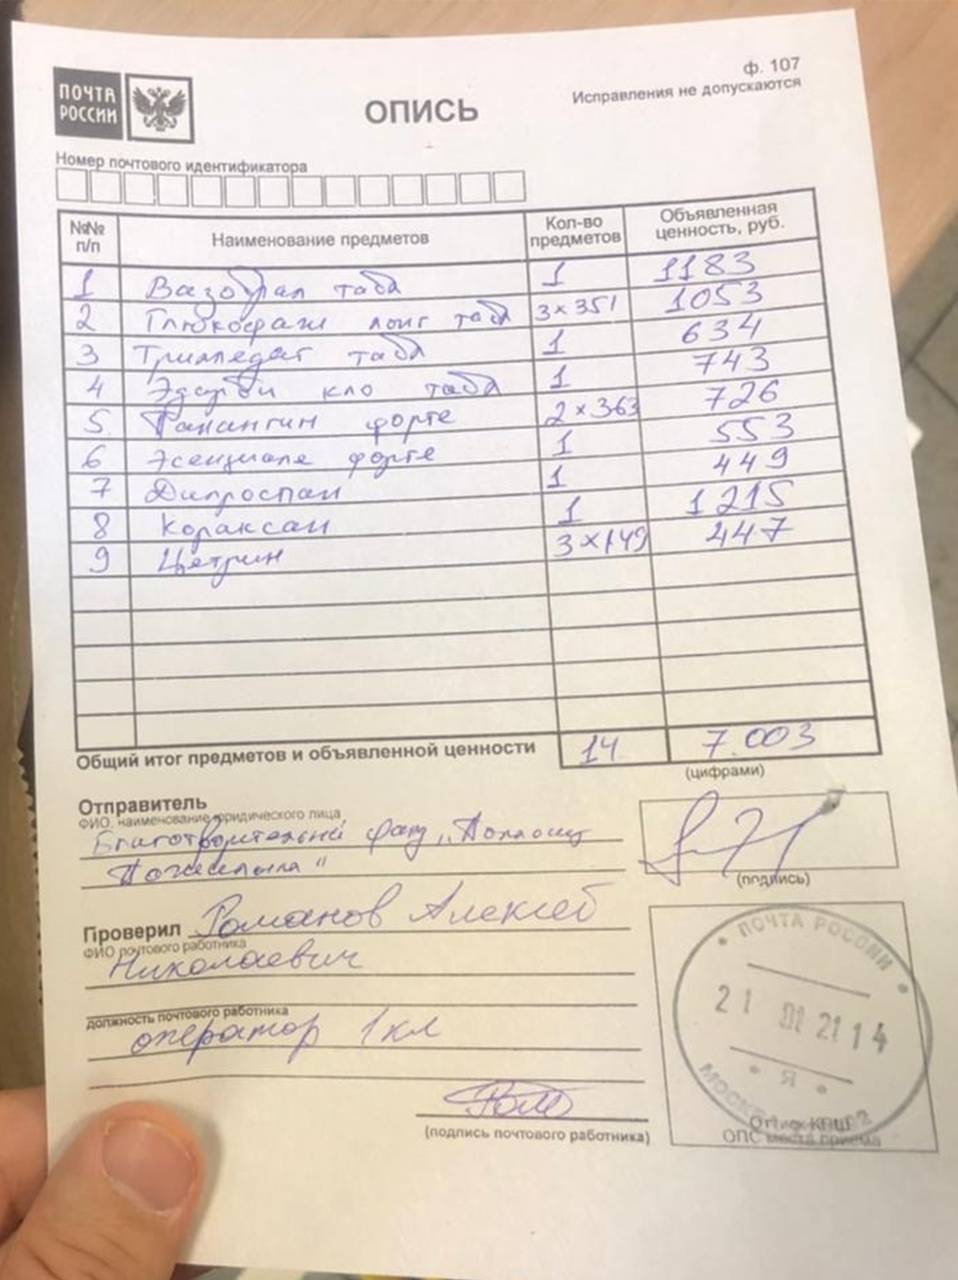 ПОЧТА РОССИИ
ф. 107
Исправления не допускаются
ОПИСЬ
Номер почтового идентификатора
№№ п/п Наименование предметов Кол-во предметов Объявленная ценность, руб.
1 Вазобрал табл 1 1183
2 Глюкофаж лонг табл 3×351 1053
3 Тримедат табл 1 634
4 Эдарби кло табл 1 743
5 Панангин форте 2×363 726
6 Эсенциале форте 1 553
7 Дипроспан 1 449
8 Кораксан 1 1215
9 Цетрин 3×149 447
Общий итог предметов и объявленной ценности 14 7.003
(цифрами)
Отправитель
ФИО, наименование юридического лица
Благотворительный фонд „Помощь
(подпись)
Проверил Романов Алексей
ФИО почтового работника
Николаевич
должность почтового работника
оператор 1кл
(подпись почтового работника)
ПОЧТА РОССИИ
21 14
Я
МОСКВА
Оттиск КПШ
ОПС места приема